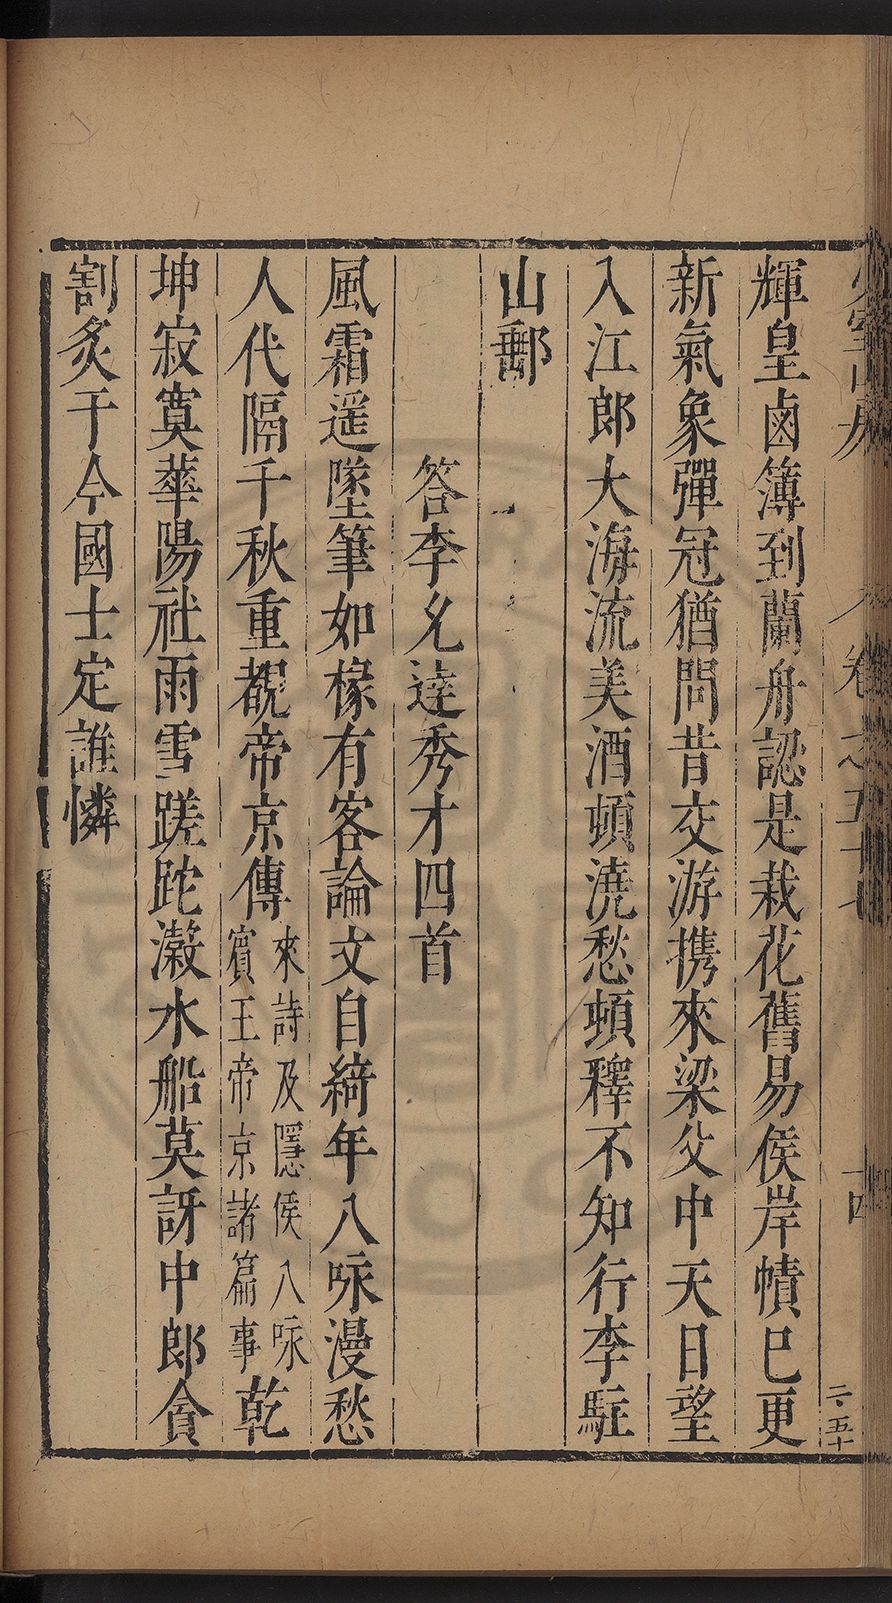 少室山房 卷之五十七 十四 二·五十
輝皇鹵簿到蘭舟認是栽花舊易侯岸幘巳更
新氣象彈冠猶問昔交游携來梁父中天日望
入江郎大海流美酒頓澆愁頓釋不知行李駐
山郵
答李允達秀才四首
風霜遥墜筆如椽有客論文自綺年八咏漫愁
人代隔千秋重覩帝京傳來詩及隱侯八咏賓王帝京諸篇事乾
坤寂寞華陽社雨雪蹉跎瀔水船莫訝中郎貪
割炙于今國士定誰憐